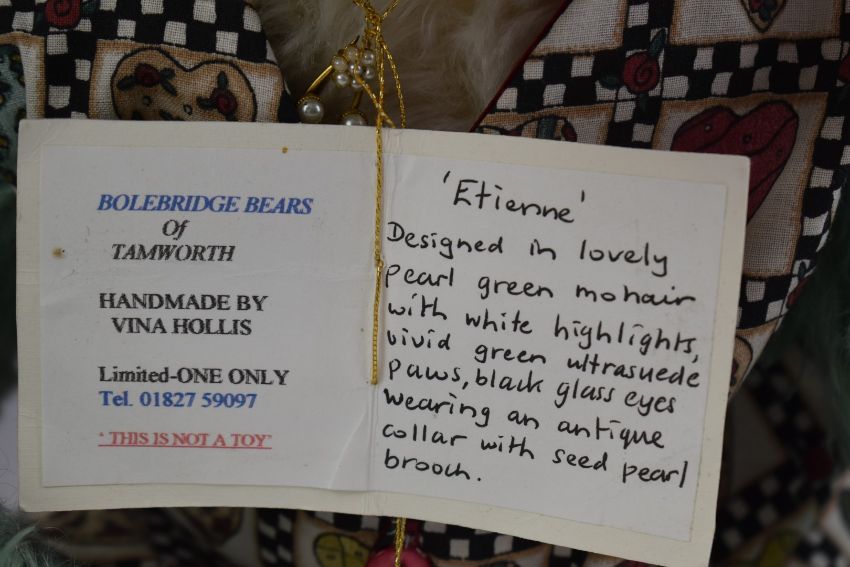 BOLEBRIDGE BEARS
Of
TAMWORTH
HANDMADE BY
VINA HOLLIS
Limited-ONE ONLY
Tel. 01827 59097
"THIS IS NOT A TOY"
'Etienne'
Designed in lovely
pearl green mohair
with white highlights,
vivid green ultrasuede
paws, black glass eyes
wearing an antique
collar with seed pearl
brooch.